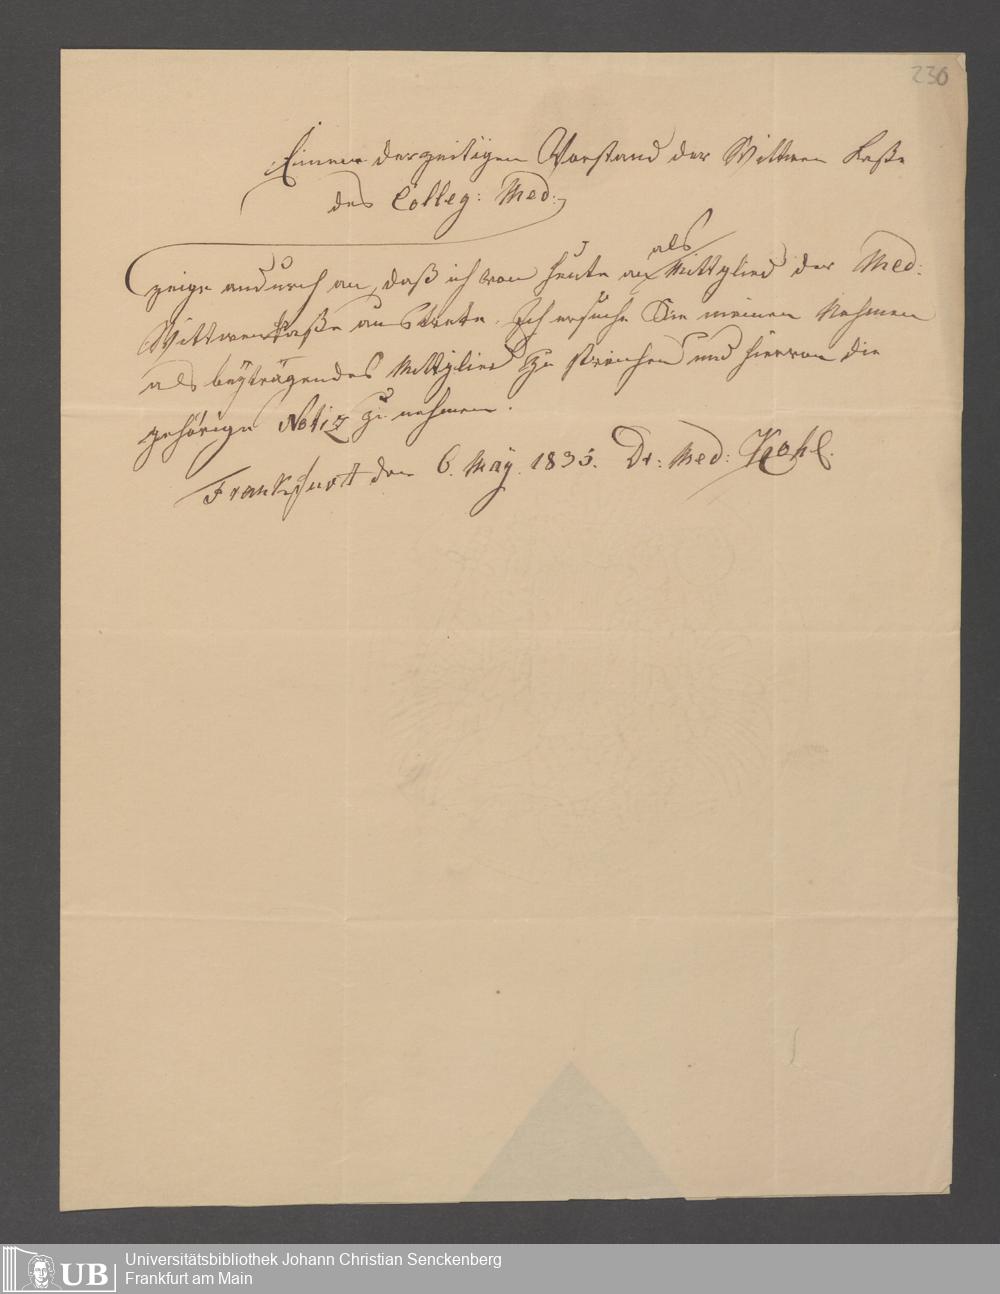 230
Einem derzeitigen Vorstand der Wittwen Kaße
des Colleg: Med:
zeige andurch an, daß ich von heute an als Mittglied der Med:
Wittwenkaße austrete. Ich ersuche Sie meinen Nahmen
als beyträgendes Mittglied zu streichen und hiervon die
gehörige Notiz zu nehmen.
Frankfurt den 6. May. 1835. Dr: Med: Kohl.
UB
Universitätsbibliothek Johann Christian Senckenberg
Frankfurt am Main